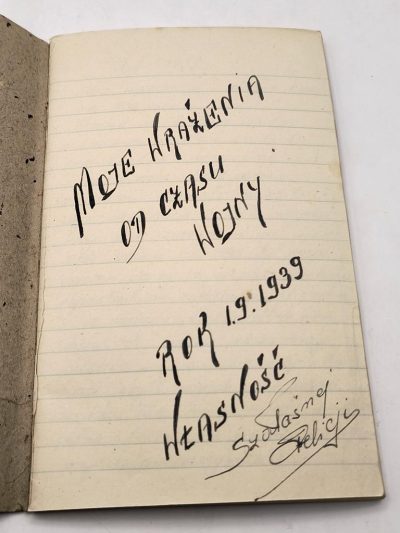 MOJE WRAŻENIA
OD CZASU
WOJNY
ROK 1.9.1939
WŁASNOŚĆ
Felicji